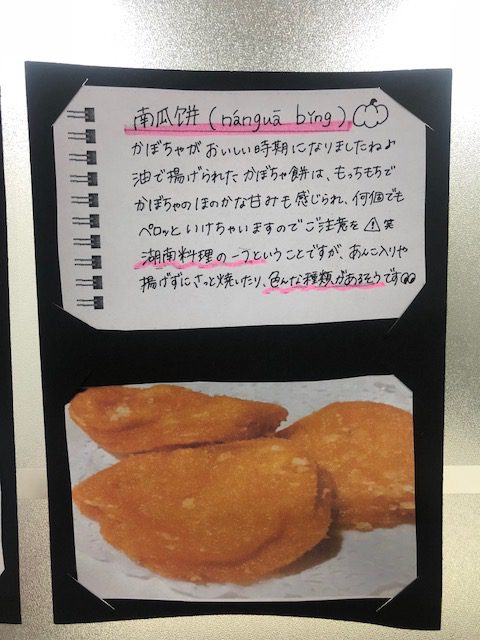 南瓜饼(nánguā bǐng)
かぼちゃがおいしい時期になりましたねよ
油で揚げられたかぼちゃ餅は、もっちもちで
かぼちゃのほのかな甘みも感じられ、何個でも
ペロッといけちゃいますのでご注意を⚠笑
湖南料理の一つということですが、あんこ入りや
揚げずにさっと焼いたり、色んな種類があるそうです